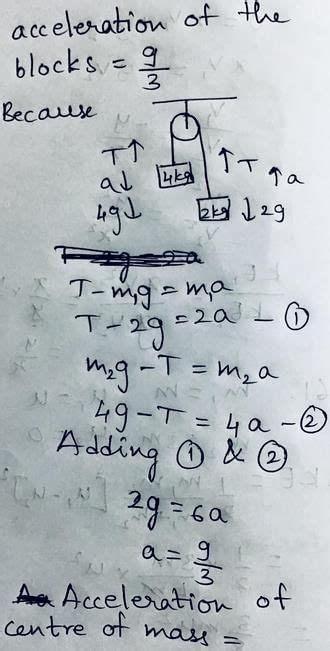 acceleration of the
blocks = g/3
Because
T↑ ↑T ↑a
a↓ 4kg
4g↓ 2kg ↓2g
T - m₁g = m₁a
T - 2g = 2a - ①
m₂g - T = m₂a
4g - T = 4a - ②
Adding ① & ②
2g = 6a
a = g/3
Acceleration of
centre of mass =